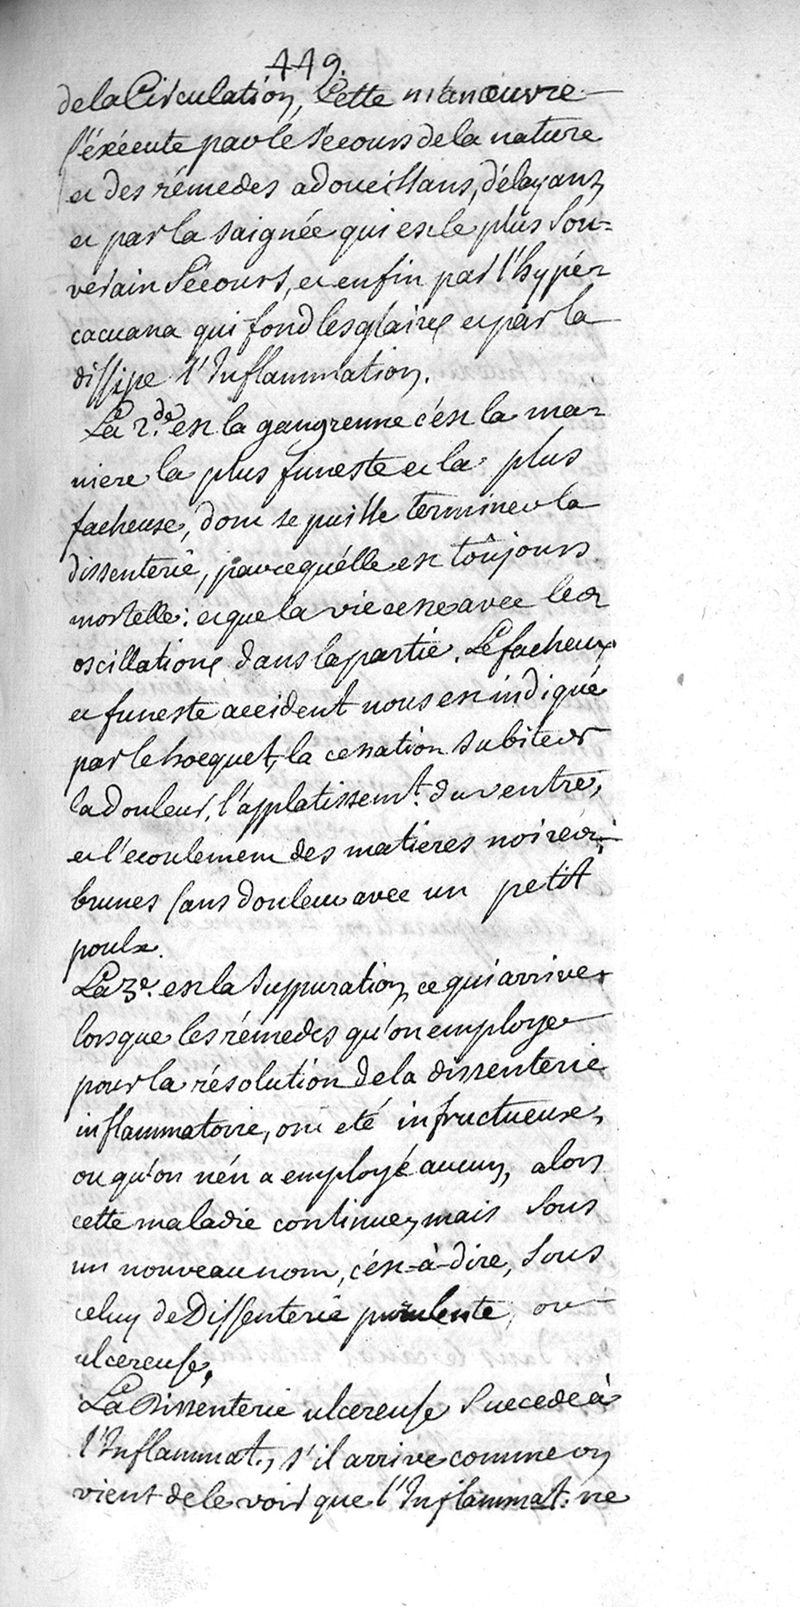 449.
de la Circulation, Cette manœuvre
s'éxécute par le secours de la nature
et des rémedes adoucissans, délayans,
et par la saignée qui est le plus sou=
verain secours, et enfin par l'hypé-
cacuana qui fond les glaires et par la
dissipe l'Inflammation.
La 2.de est la gangrenne c'est la ma-
niere la plus funeste et la plus
facheuse, dont se puisse terminer la
dissenterie, parce qu'élle est toûjours
mortelle: et que la vie cesse avec les
oscillations dans la partie. Ce facheux
et funeste accident nous est indiqué
par le hocquet, la cessation subite de
la douleur, l'applatissem.t du ventre,
et l'ecoulement des matieres noires,
brunes sans douleur avec un petit
poulx.
La 3.e est la suppuration, ce qui arrive
lorsque les rémedes qu'on employe
pour la résolution de la dissenterie
inflammatoire, ont eté infructueux,
ou qu'on n'én a employé aucun, alors
cette maladie continue, mais sous
un nouveau nom, c'ést-à-dire, sous
celuy de Dissenterie purulente, ou
ulcereuse.
La Dissenterie ulcereuse succede à
l'Inflammat., s'il arrive comme on
vient de le voir que l'Inflammat. ne